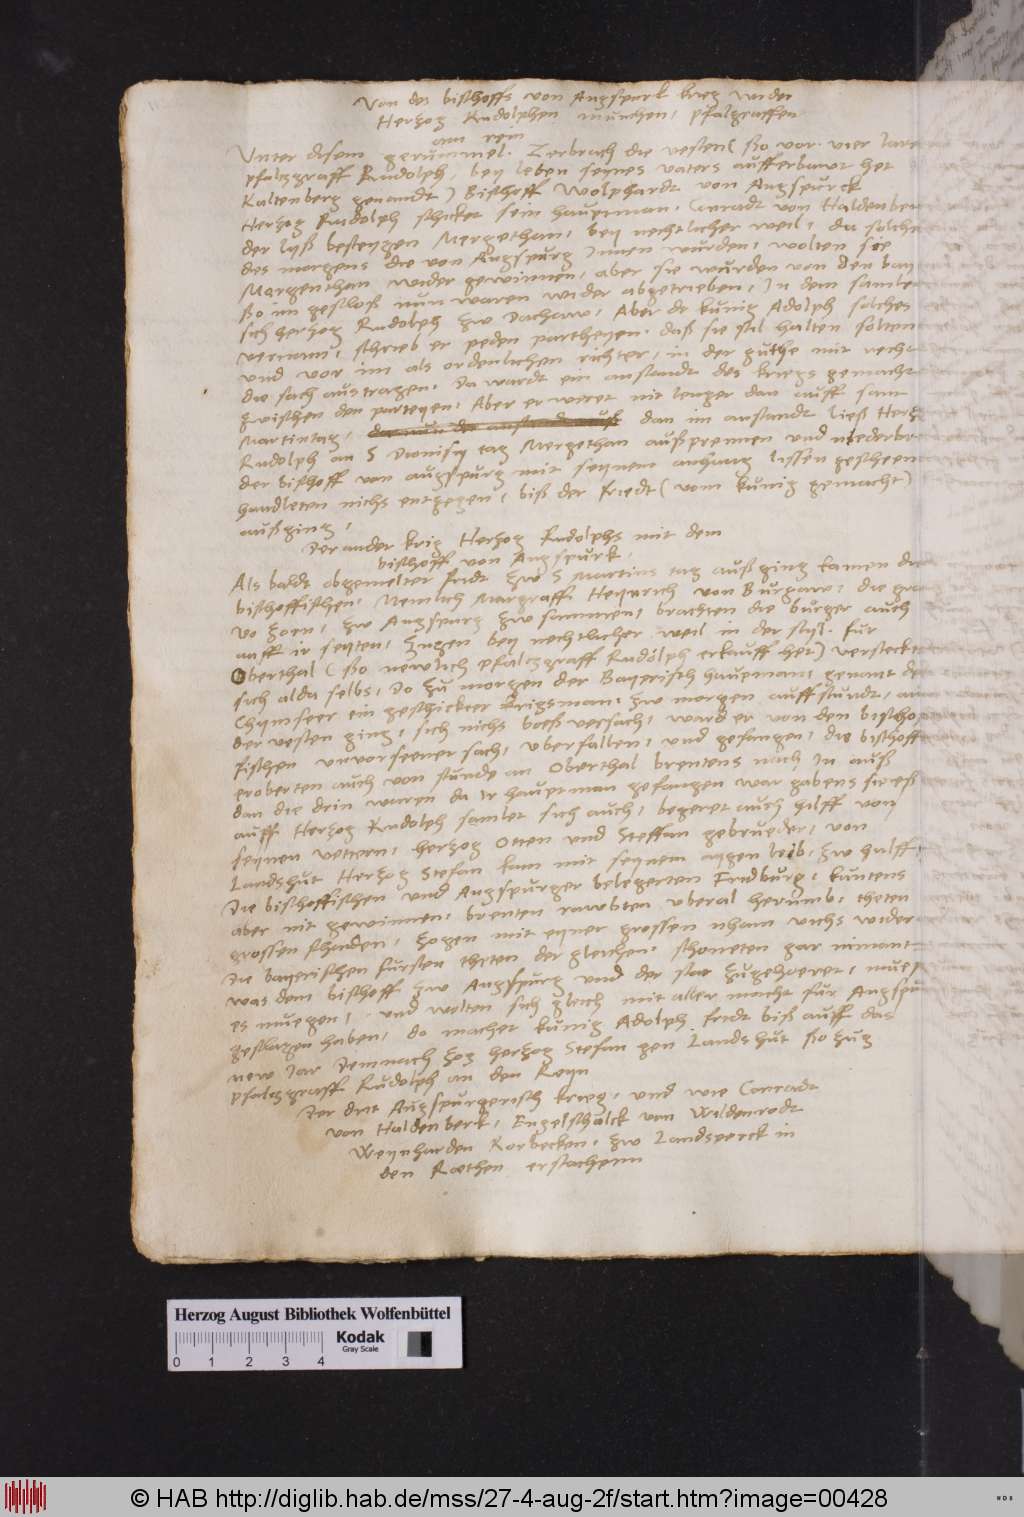 Von des bisthoffs von Augspurk krieg wider
Hertzog Rudolphen munchen, pfalgraffen
am rein
Unter disem gerummel. Zerbrach die vesten ( ßo vor vier jare
pfaltzgraff Rudolph, bey leben seynes vaters aufferbawt het
Kaltenberg genandt ) Bisthoff Wolphardt von Augspurck
Hertzog Rudolph schicket sein hauptman, Conradt von Haldenber
der ließ besteygen Mergetham, bey nechtlicher weil, da solchs
des morgens die von Augspurg Innen wurden, wolten sie
Margentham wider gewinnen, aber sie wurden von den bay
ßo im gschloß nun waren wider abgetrieben, In dem samlet
sich hertzog Rudolph zw Dachaw, Aber dt kunig Adolph solches
vernam, schrieb er peden partheyen, daß sie stil halten solten
und vor im als ordenlichen richter, in der guthe mit recht
die sach austragen, Da wardt ein anstandt des kriegs gemacht
zwischen den parteyen, Aber er weret nit lenger dan auff sant
Martinstag, dan im anstandt ließ Hertz
Rudolph an S Dionisij tag Mergethan außprennen und niederbr
der bisthoff von augspurg mit seynem anhang lissen gescheen
handleten nichs entgegen, biß der friedt ( vom kunig gemacht )
außging,
Der ander krig Hertzog Rudolphs mit dem
bisthoff von Augspurk,
Als baldt obgemelter fridt zw S Martins tag außging kamen die
bisthoffischen, Nemlich Margraff Heynrich von Burgaw, die gra
vo Zorn, zw Augspurg zw sammen, brachten die burger auch
auff ir seyten, Zugen bey nechtlicher weil in der styl. fur
Oberthal ( ßo newlich pfaltzgraff Rudolph erkaufft het ) versteckt
sich alda selbs, Do zu morgen der Bayrisch hauptman, genant der
Chymseer ein geschickter krigsman, zw morgen auff stundt,
der vesten ging, sich nichs boeß versach, ward er von den bischo
fischen unvorseener sach, uberfallen, und gefangen, die bisthoff
eroberten auch von stunde an Oberthal brentens nach In auß
dan die drin waren da Ir hauptman gefangen war gabens sie eß
auff, Hertzog Rudolph samlet sich auch, begeret auch hilff von
seynen vettern, hertzog Otten und Steffan gebrueder, von
Landshut Hertzog Stefan kam mit seynem aygen leib, zw hulff,
Die bisthoffischen und Augspurger belegerten Fridburg, kuntens
aber nit gewinnen, brenten rawbten uberal herumb, theten
grossen schaden, zogen mit eyner grossen nham vichs wider
Die bayerischen fursten theten der gleichen, schoneten gar nimant
was dem bisthoff zw Augspurg und der stat zugehoeret, mues
es muegen, und wolten sich gleich mit aller macht fur Augspu
geschlagen haben, do machet kunig Adolph fridt biß auff das
new Jar Demnach zog hertzog Stefan gen Landshut ßo zug
pfaltzgraff Rudolph an den Reyn
Der drit Augspurgerisch krieg, und wie Conradt
von Haldenberk, Engelschalck von Wildenrodt
Weynharden Rorbecken, zw Landsperck in
den Rothen erstachenn
Herzog August Bibliothek Wolfenbüttel
Kodak
Gray Scale
0 1 2 3 4
© HAB http://diglib.hab.de/mss/27-4-aug-2f/start.htm?image=00428